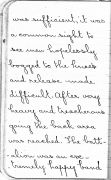 was sufficient, it was
a common sight to
see men hopelessly
bogged to the knees
and release made
difficult. After very
heavy and treacherous
going the back area
was reached. The batt-
alion was an ex-
tremely happy band